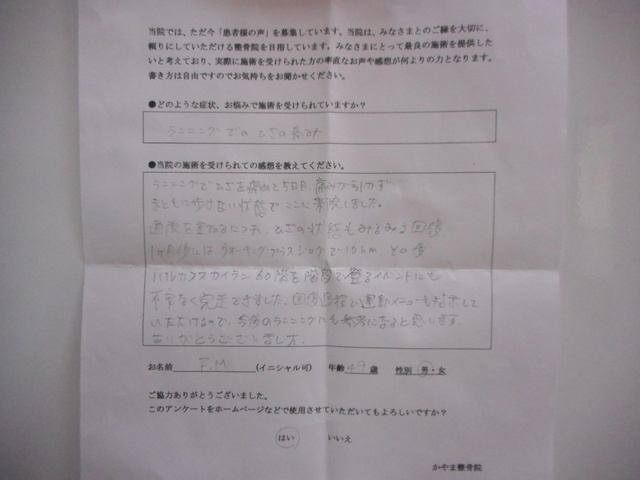 当院では、ただ今「患者様の声」を募集しています。当院は、みなさまとのご縁を大切に、
頼りにしていただける整骨院を目指しています。みなさまにとって最良の施術を提供したい
と考えており、実際に施術を受けられた方の率直なお声や感想が何よりの力となります。
書き方は自由ですのでお気持ちをお聞かせください。
●どのような症状、お悩みで施術を受けられていますか？
ランニングでのひざの痛み
●当院の施術を受けられての感想を教えてください。
ランニングでひざを痛めて5日目、痛みが引かず
まともに歩けない状態でここに来院しました。
通院を重ねるにつれ、ひざの状態もみるみる回復
1ヶ月後にはウォーキングプラスジョグで10km、その後
ハルカススカイラン60階を階段で登るイベントにも
不安なく完走できました。回復過程で運動メニューも提示して
いただけるので、今後のランニングにも参考になると思います。
ありがとうございました。
お名前 F.M (イニシャル可) 年齢 49 歳 性別 男・女
ご協力ありがとうございました。
このアンケートをホームページなどで使用させていただいてもよろしいですか？
はい いいえ
かやま整骨院